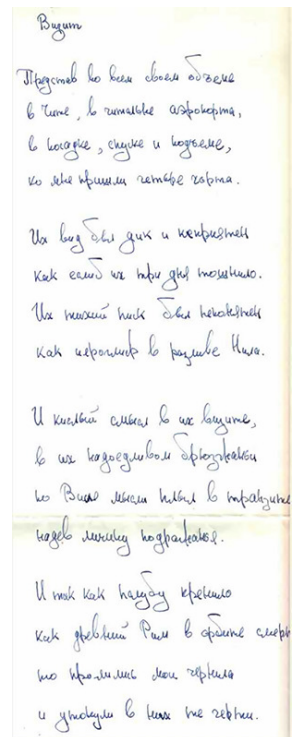 Визит
Представ во всем своем объеме
в Чите, в читальне аэропорта,
в посадке, спуске и подъеме,
ко мне пришли четыре чорта.
Их вид был дик и неприятен
как еслиб их три дня тошнило.
Их тихий писк был непонятен
как иероглиф в разливе Нила.
И кислый смысл в их визите,
в их надоедливом брюзжаньи
по Виле мысли плыл в транзите
надев личину подражанья.
И так как палубу кренило
как древний Рим в орбите смерт
то пролились мои чернила
и утонули в них те черти.